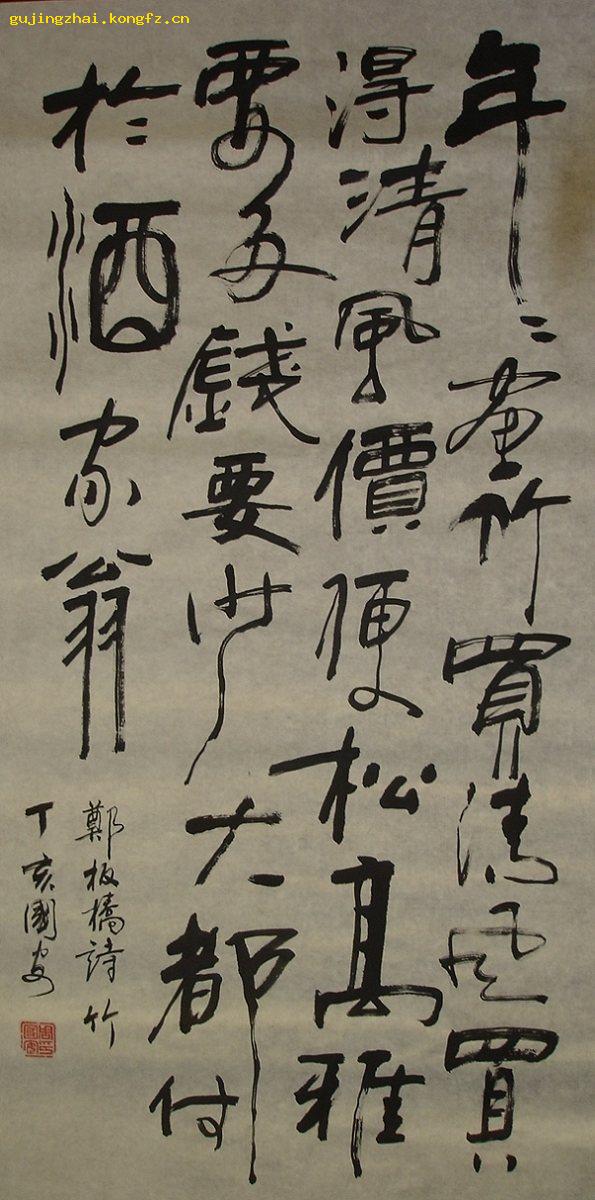 gujingzhai.kongfz.cn
年〻畫竹買清風買
得清風價便松高雅
要多錢要少大都付
於酒家翁
鄭板橋詩竹
丁亥國安